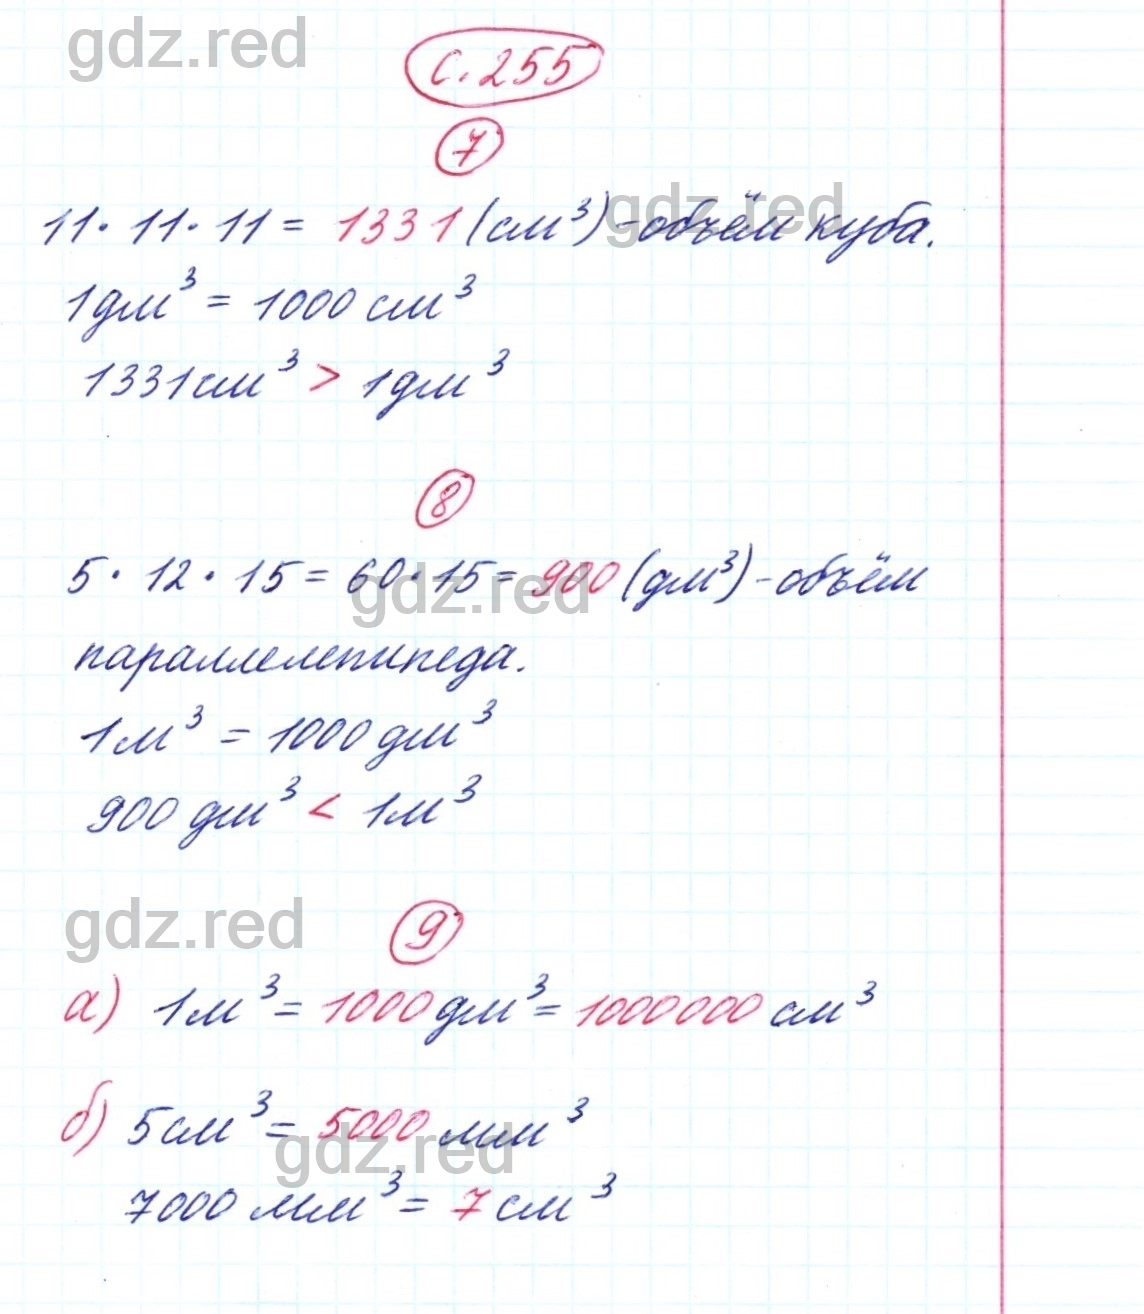 gdz.red
с. 255
7
11 · 11 · 11 = 1331 (см³) - объём куба.
gdz.red
1 дм³ = 1000 см³
1331 см³ > 1 дм³
8
5 · 12 · 15 = 60 · 15 = 900 (дм³) - объём
gdz.red
параллелепипеда.
1 м³ = 1000 дм³
900 дм³ < 1 м³
gdz.red
9
а) 1 м³ = 1000 дм³ = 1000000 см³
б) 5 см³ = 5000 мм³
gdz.red
7000 мм³ = 7 см³